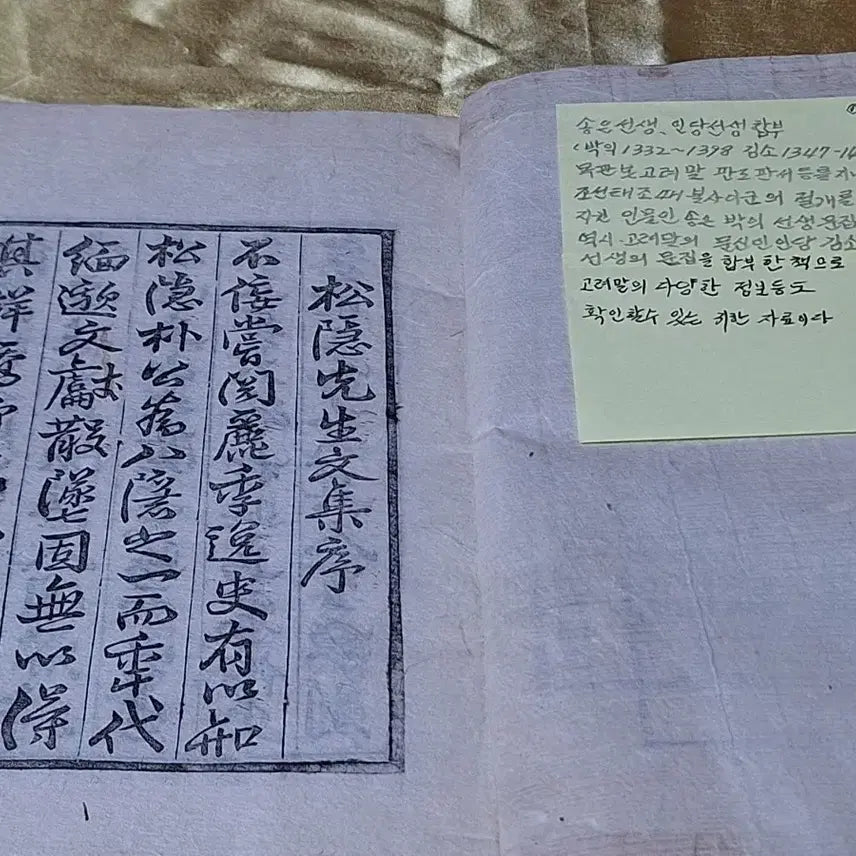 송은선생、인당선생 합부
박의 1332~1398 김소 1347-14
목판본 고려말 판도판서등를 지
조선태조때 불사이군의 절개를
지킨 인물인 송은 박의 선생 문집
역시 고려말의 문신인 인당 김소
선생의 문집을 합부한 책으로
고려말의 다양한 정보등도
확인할수 있는 귀한 자료이다
松隱先生文集序
不佞嘗閱麗季逸史有以知
松隱朴公爲八隱之一而秊代
緬邈文獻散墜固無以得
其詳